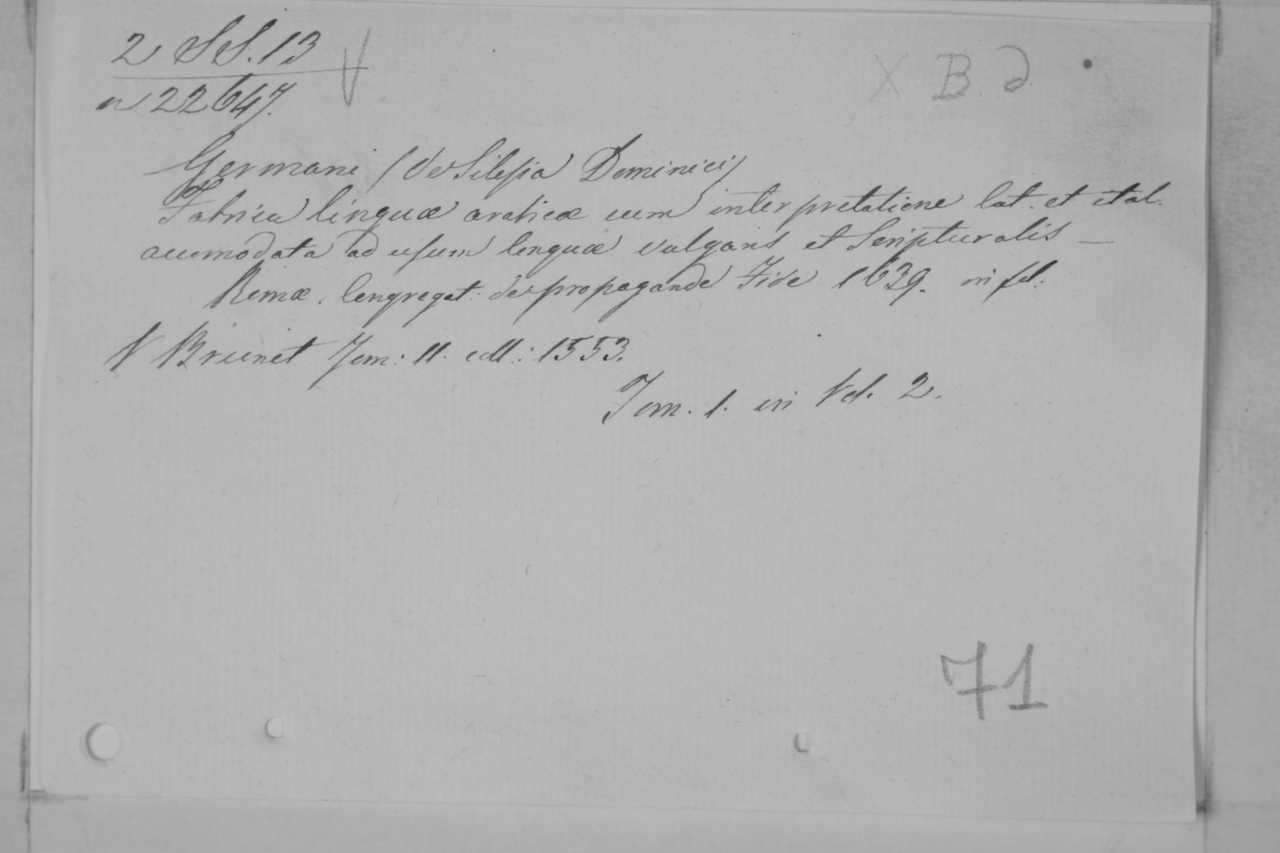 2 SS. 13 V
n 22647.
X B d
Germani (de Silesia Dominici)
Fabrica linguæ arabicæ cum interpretatione lat. et ital.
accomodata ad usum linguæ vulgaris et Scripturalis —
Romæ. Congregat: de propaganda Fide 1639. in fol.
V Brunet Tom: II. coll: 1553.
Tom. 1. in Vol. 2.
71